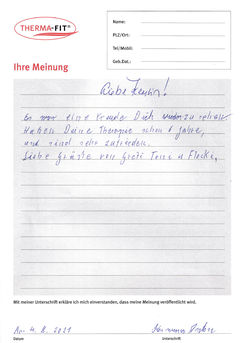 THERMA-FIT®
Name:
PLZ/Ort:
Tel/Mobil:
Geb.Dat.:
Ihre Meinung
Liebe !
Es war eine Freude Dich wieder zu
Haben Deine Therapie schon 6 Jahre,
und sind sehr zufrieden.
Liebe Grüße von Gredi Toni u Flocki,
Mit meiner Unterschrift erkläre ich mich einverstanden, dass meine Meinung veröffentlicht wird.
4. 8. 2021
Datum
Unterschrift